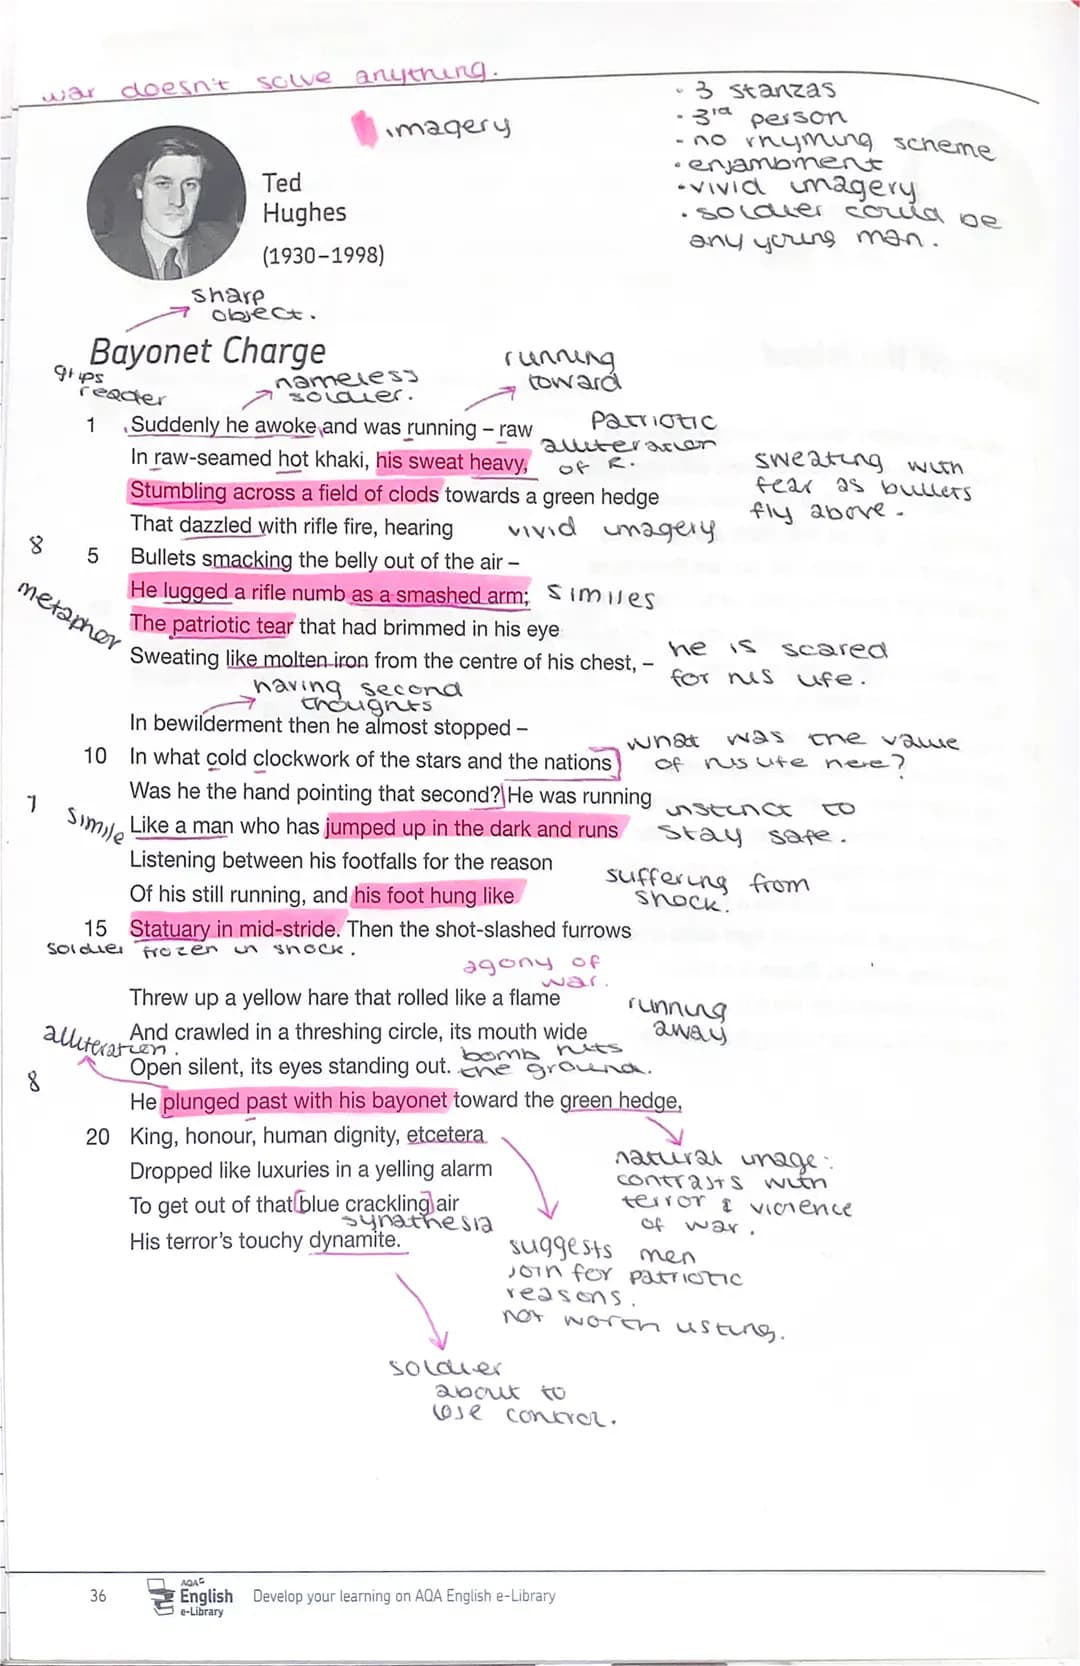 war doesn't solve anything.
imagery
· 3 stanzas
· 3rd person
- no rhyming scheme
· enjambment
· vivid imagery
· soldier could be
any young man.
Ted
Hughes
(1930–1998)
sharp
object.
Bayonet Charge
grips
reader
nameless
soldier.
running
toward
1 Suddenly he awoke and was running – raw
Patriotic
alliteration
of R.
In raw-seamed hot khaki, his sweat heavy,
Stumbling across a field of clods towards a green hedge
sweating with
fear as bullets
fly above.
That dazzled with rifle fire, hearing
vivid imagery
8
5 Bullets smacking the belly out of the air –
He lugged a rifle numb as a smashed arm;
similes
metaphor
The patriotic tear that had brimmed in his eye
Sweating like molten iron from the centre of his chest, –
he is scared
for his life.
having second
thoughts
In bewilderment then he almost stopped –
10 In what cold clockwork of the stars and the nations
what was the value
of his life here?
Was he the hand pointing that second? He was running
7
simile
Like a man who has jumped up in the dark and runs
instinct to
stay safe.
Listening between his footfalls for the reason
Of his still running, and his foot hung like
suffering from
shock.
15 Statuary in mid-stride. Then the shot-slashed furrows
soldier frozen in shock.
agony of
war.
Threw up a yellow hare that rolled like a flame
And crawled in a threshing circle, its mouth wide
running
away
alliteration.
Open silent, its eyes standing out.
bomb hits
the ground.
8
He plunged past with his bayonet toward the green hedge,
20 King, honour, human dignity, etcetera
Dropped like luxuries in a yelling alarm
To get out of that blue crackling air
synathesia
His terror's touchy dynamite.
natural image:
contrasts with
terror & violence
of war.
suggests men
join for patriotic
reasons.
not worth listing.
soldier
about to
lose control.
36
AQA
English
e-Library
Develop your learning on AQA English e-Library